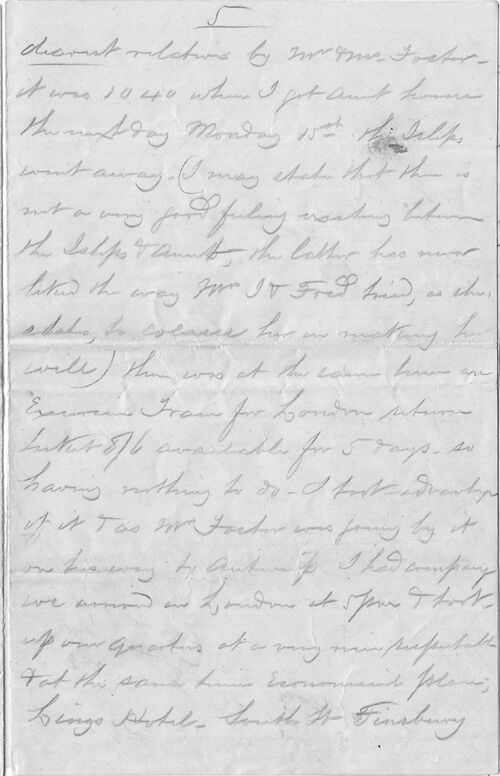 5
dearest relatives by Mr & Mrs Foster -
it was 10 40 when I got Aunt home
the next day Monday 15th the Islips
went away. (I may state that there is
not a very good feeling existing between
the Islips & Aunt, the latter has never
liked the way Mrs I & Fred tried, as she
states, to coerce her in making her
will) there was at the same time an
Excursion Train for London return
ticket 8/6 available for 5 days - so
having nothing to do - I took advantage
of it & as Mr Foster was going by it
on his way to Antwerp I had company
we arrived in London at 5pm & took
up our quarters at a very nice respectable
& at the same time Economical place,
Lings Hotel - South St Finsbury